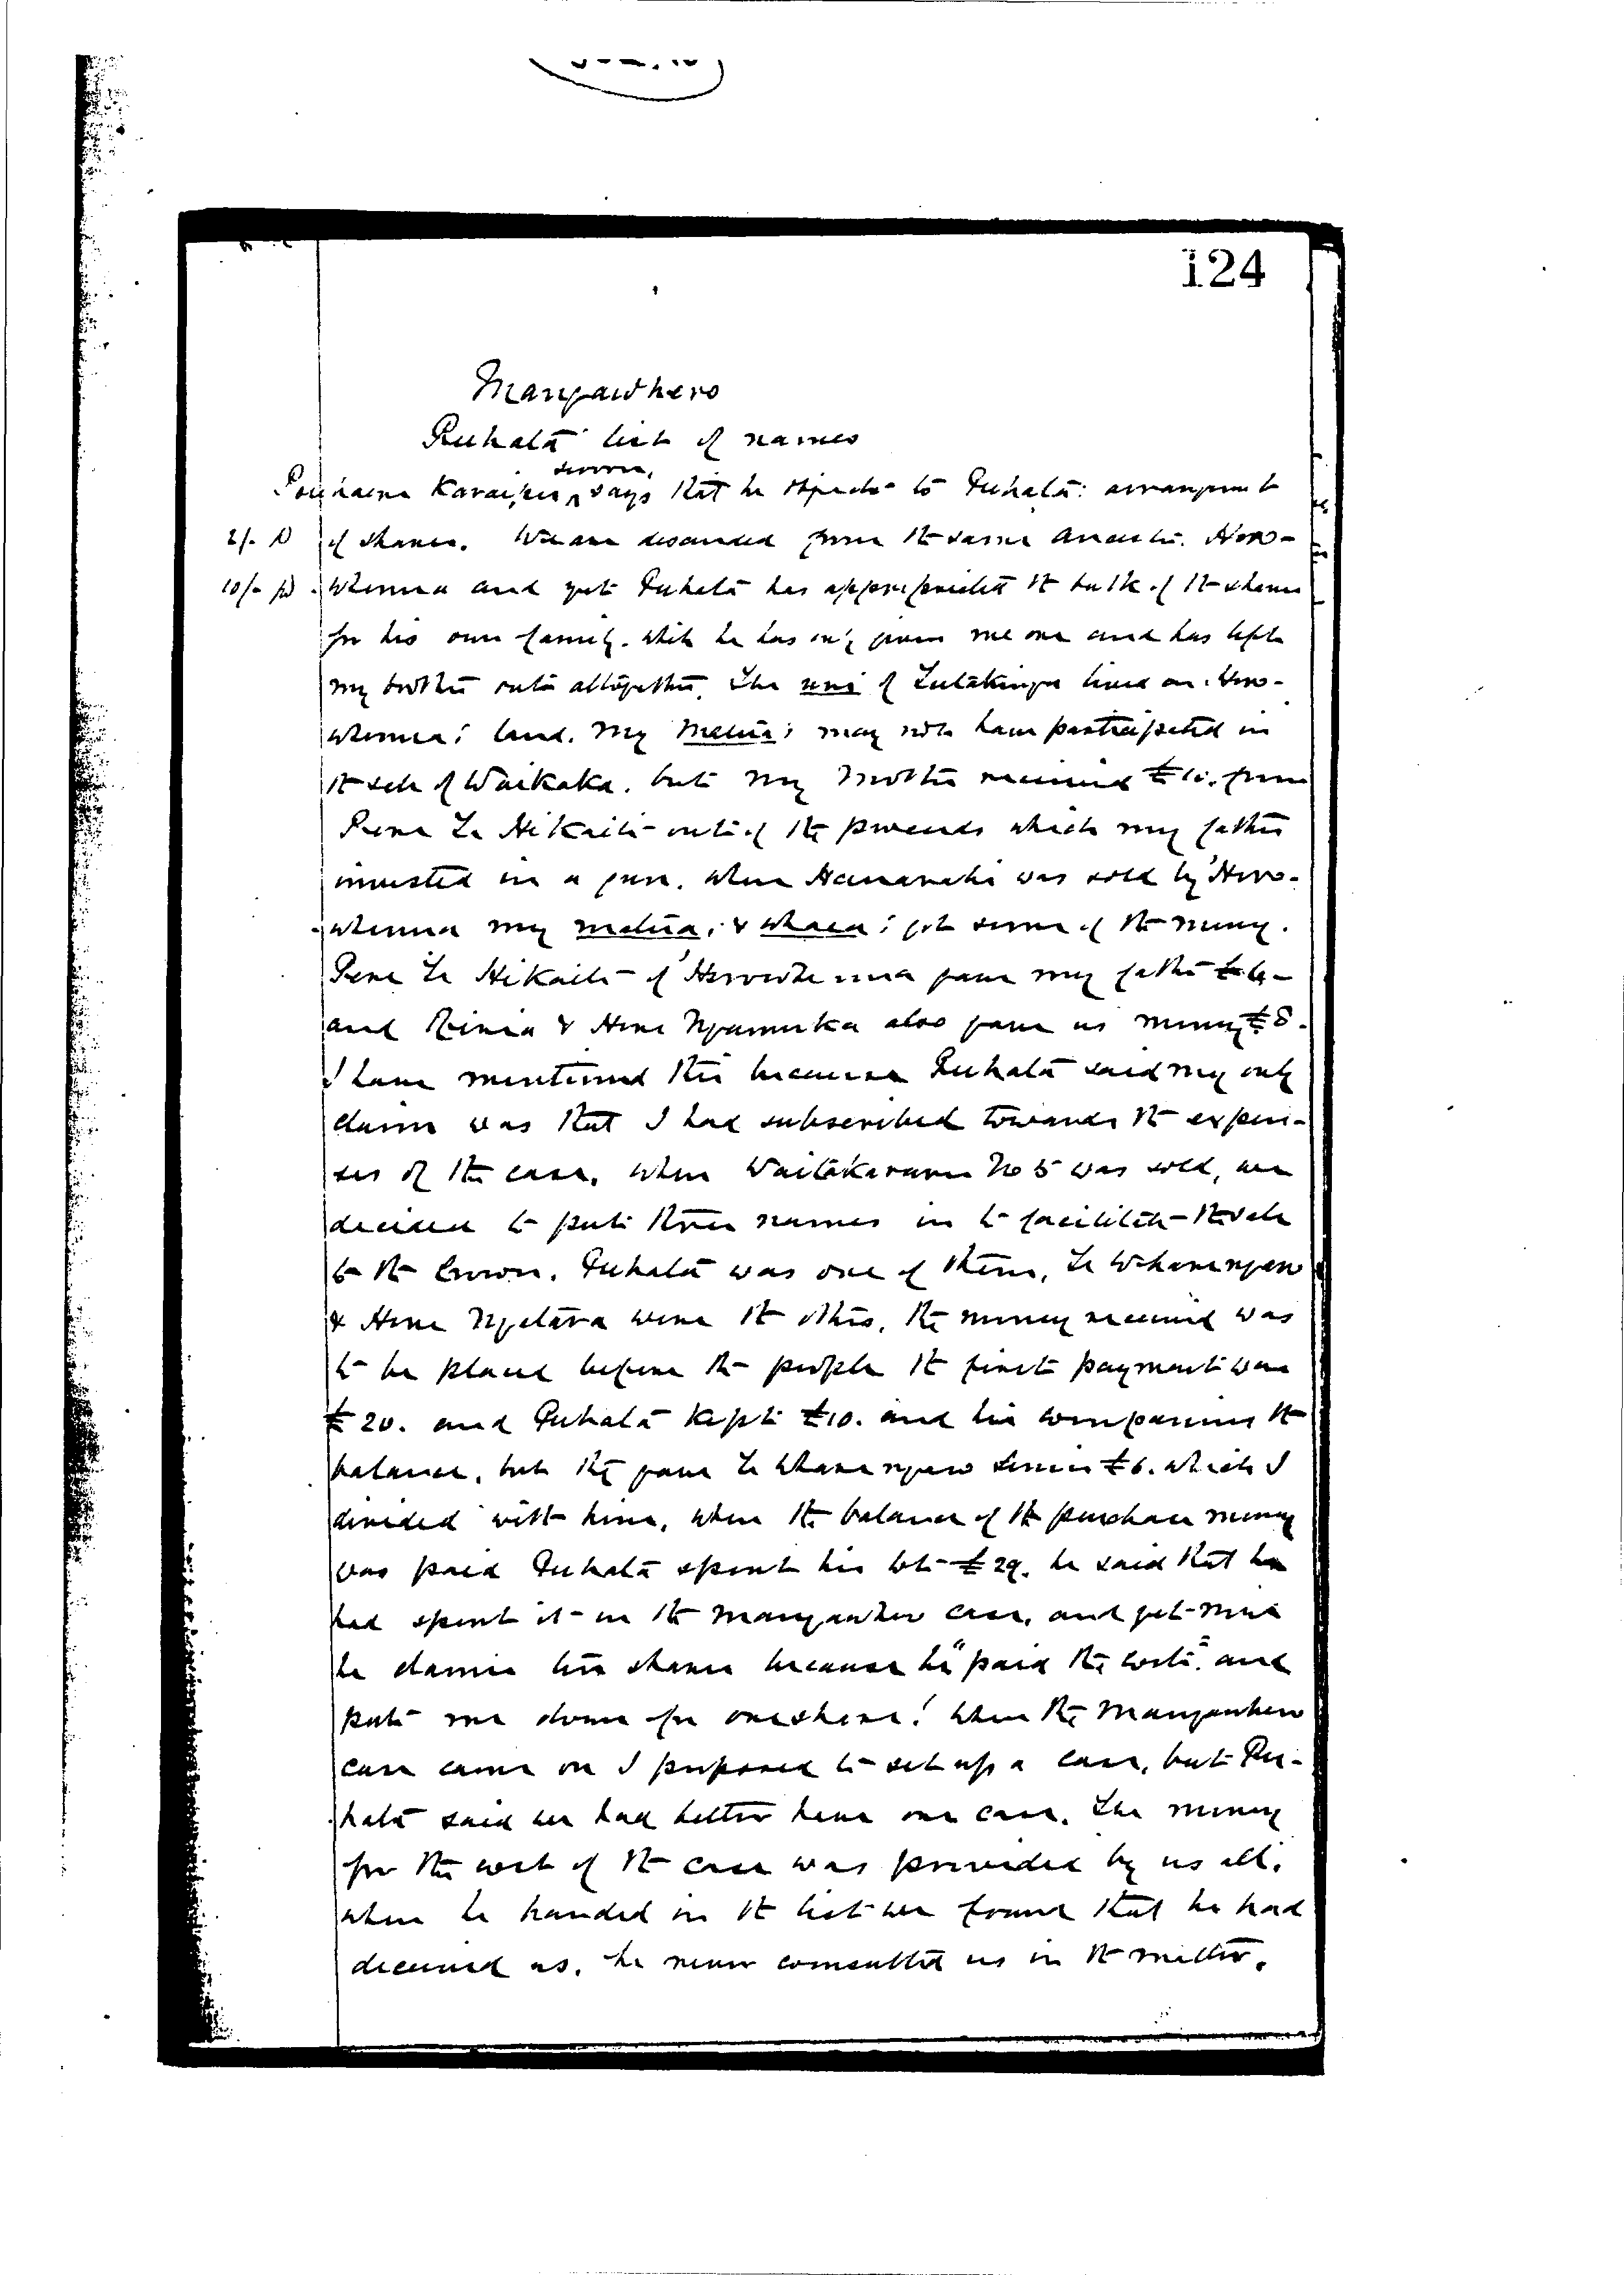 124
Mangawhero
Ruhata list of names
sworn,
Karaipu says that he objects to Ruhata's arrangement
2/- of shares. We are descended from the same ancestor. Hero-
10/- pd whenua and yet Ruhata has appropriated the bulk of the shares
for his own family. while he has only given me one and has left
my brother out altogether. The uri of Tutakinga lived on Hero-
whenua's land. My matua's may not have participated in
the sale of Waikaka. but my mother received £10. from
Pene Te Hikaiti out of the proceeds which my father
invested in a gun. When was sold by Hero-
whenua my matua's & whaea's got some of the money.
Pene Te Hikaiti of Herowhenua gave my father
and & Hine also gave us money £8.
I have mentioned this because Ruhata said my only
claim was that I had subscribed towards the expen-
ses of the case. When No 5 was sold, we
decided to put three names in to facilitate the sale
to the Crown. Ruhata was one of them,
& Hine Ngatara were the others. The money received was
to be placed before the people the first payment was
£20. and Ruhata kept £10. and his companions the
balance, but they gave some £6. which I
divided with him, when the balance of the purchase money
was paid Ruhata spent his lot £29. he said that he
had spent it in the Mangawhero case, and yet now
he claims his shares because he "paid the costs" and
puts me down for one share! When the Mangawhero
case came on I proposed to set up a case, but Ru-
hata said we had better have one case. The money
for the cost of the case was provided by us all.
when he handed in the list we found that he had
deceived us. he never consulted us in the matter.